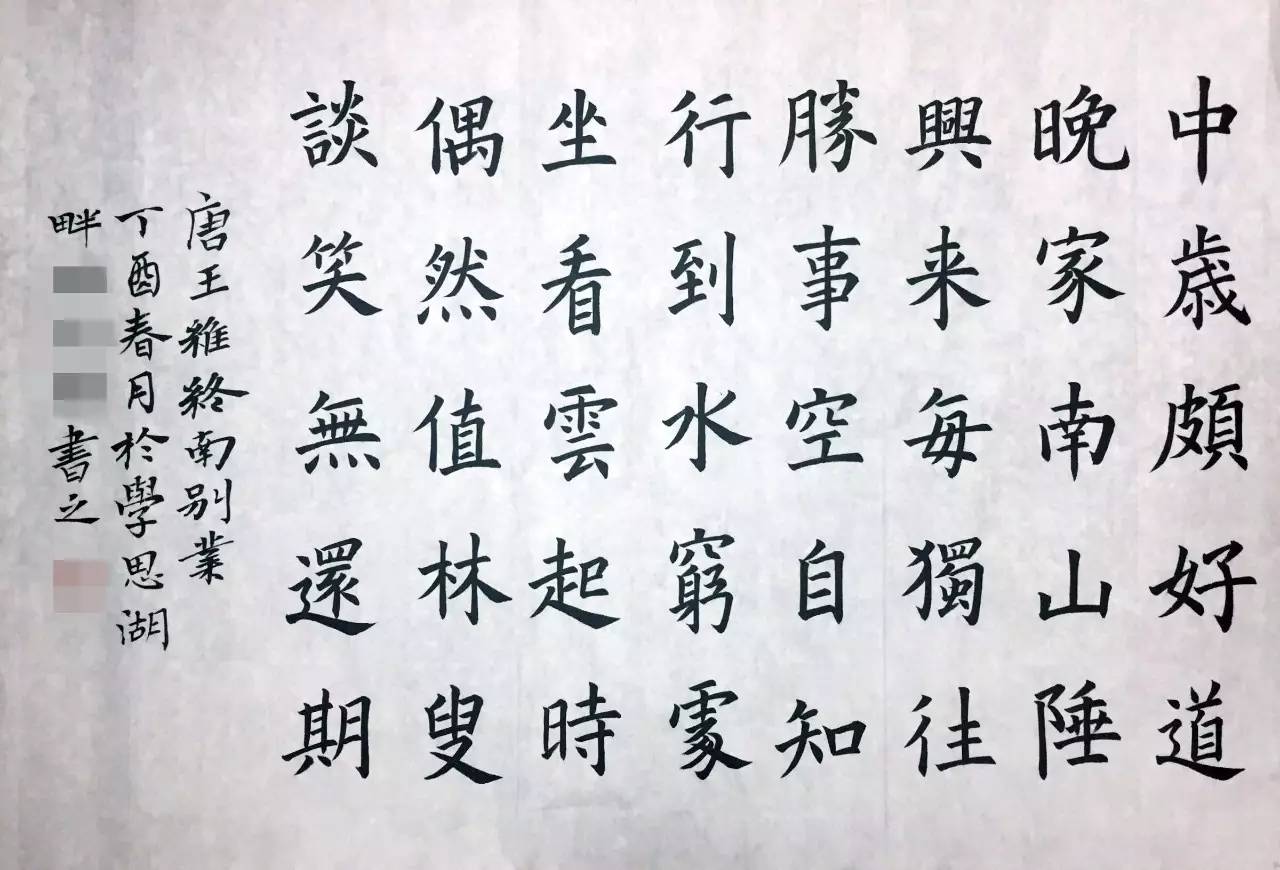 中歲頗好道
晚家南山陲
興来每獨往
勝事空自知
行到水窮處
坐看雲起時
偶然值林叟
談笑無還期
唐王維終南别業
丁酉春月於學思湖
畔
書之